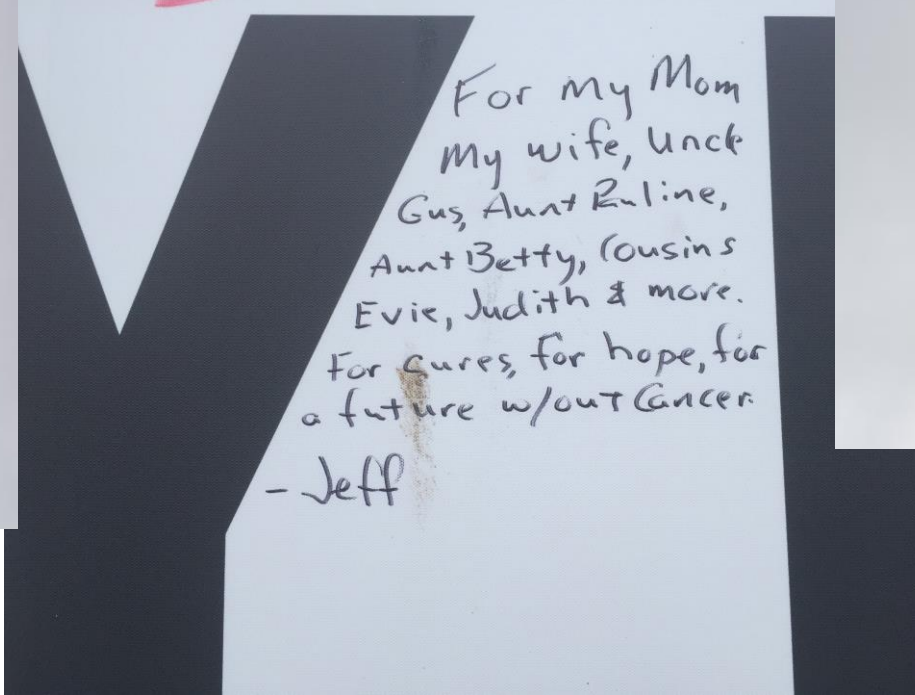 For my Mom
My wife, Uncle
Gus, Aunt Pauline,
Aunt Betty, Cousins
Evie, Judith & more.
For cures, for hope, for
a future w/out Cancer.
- Jeff